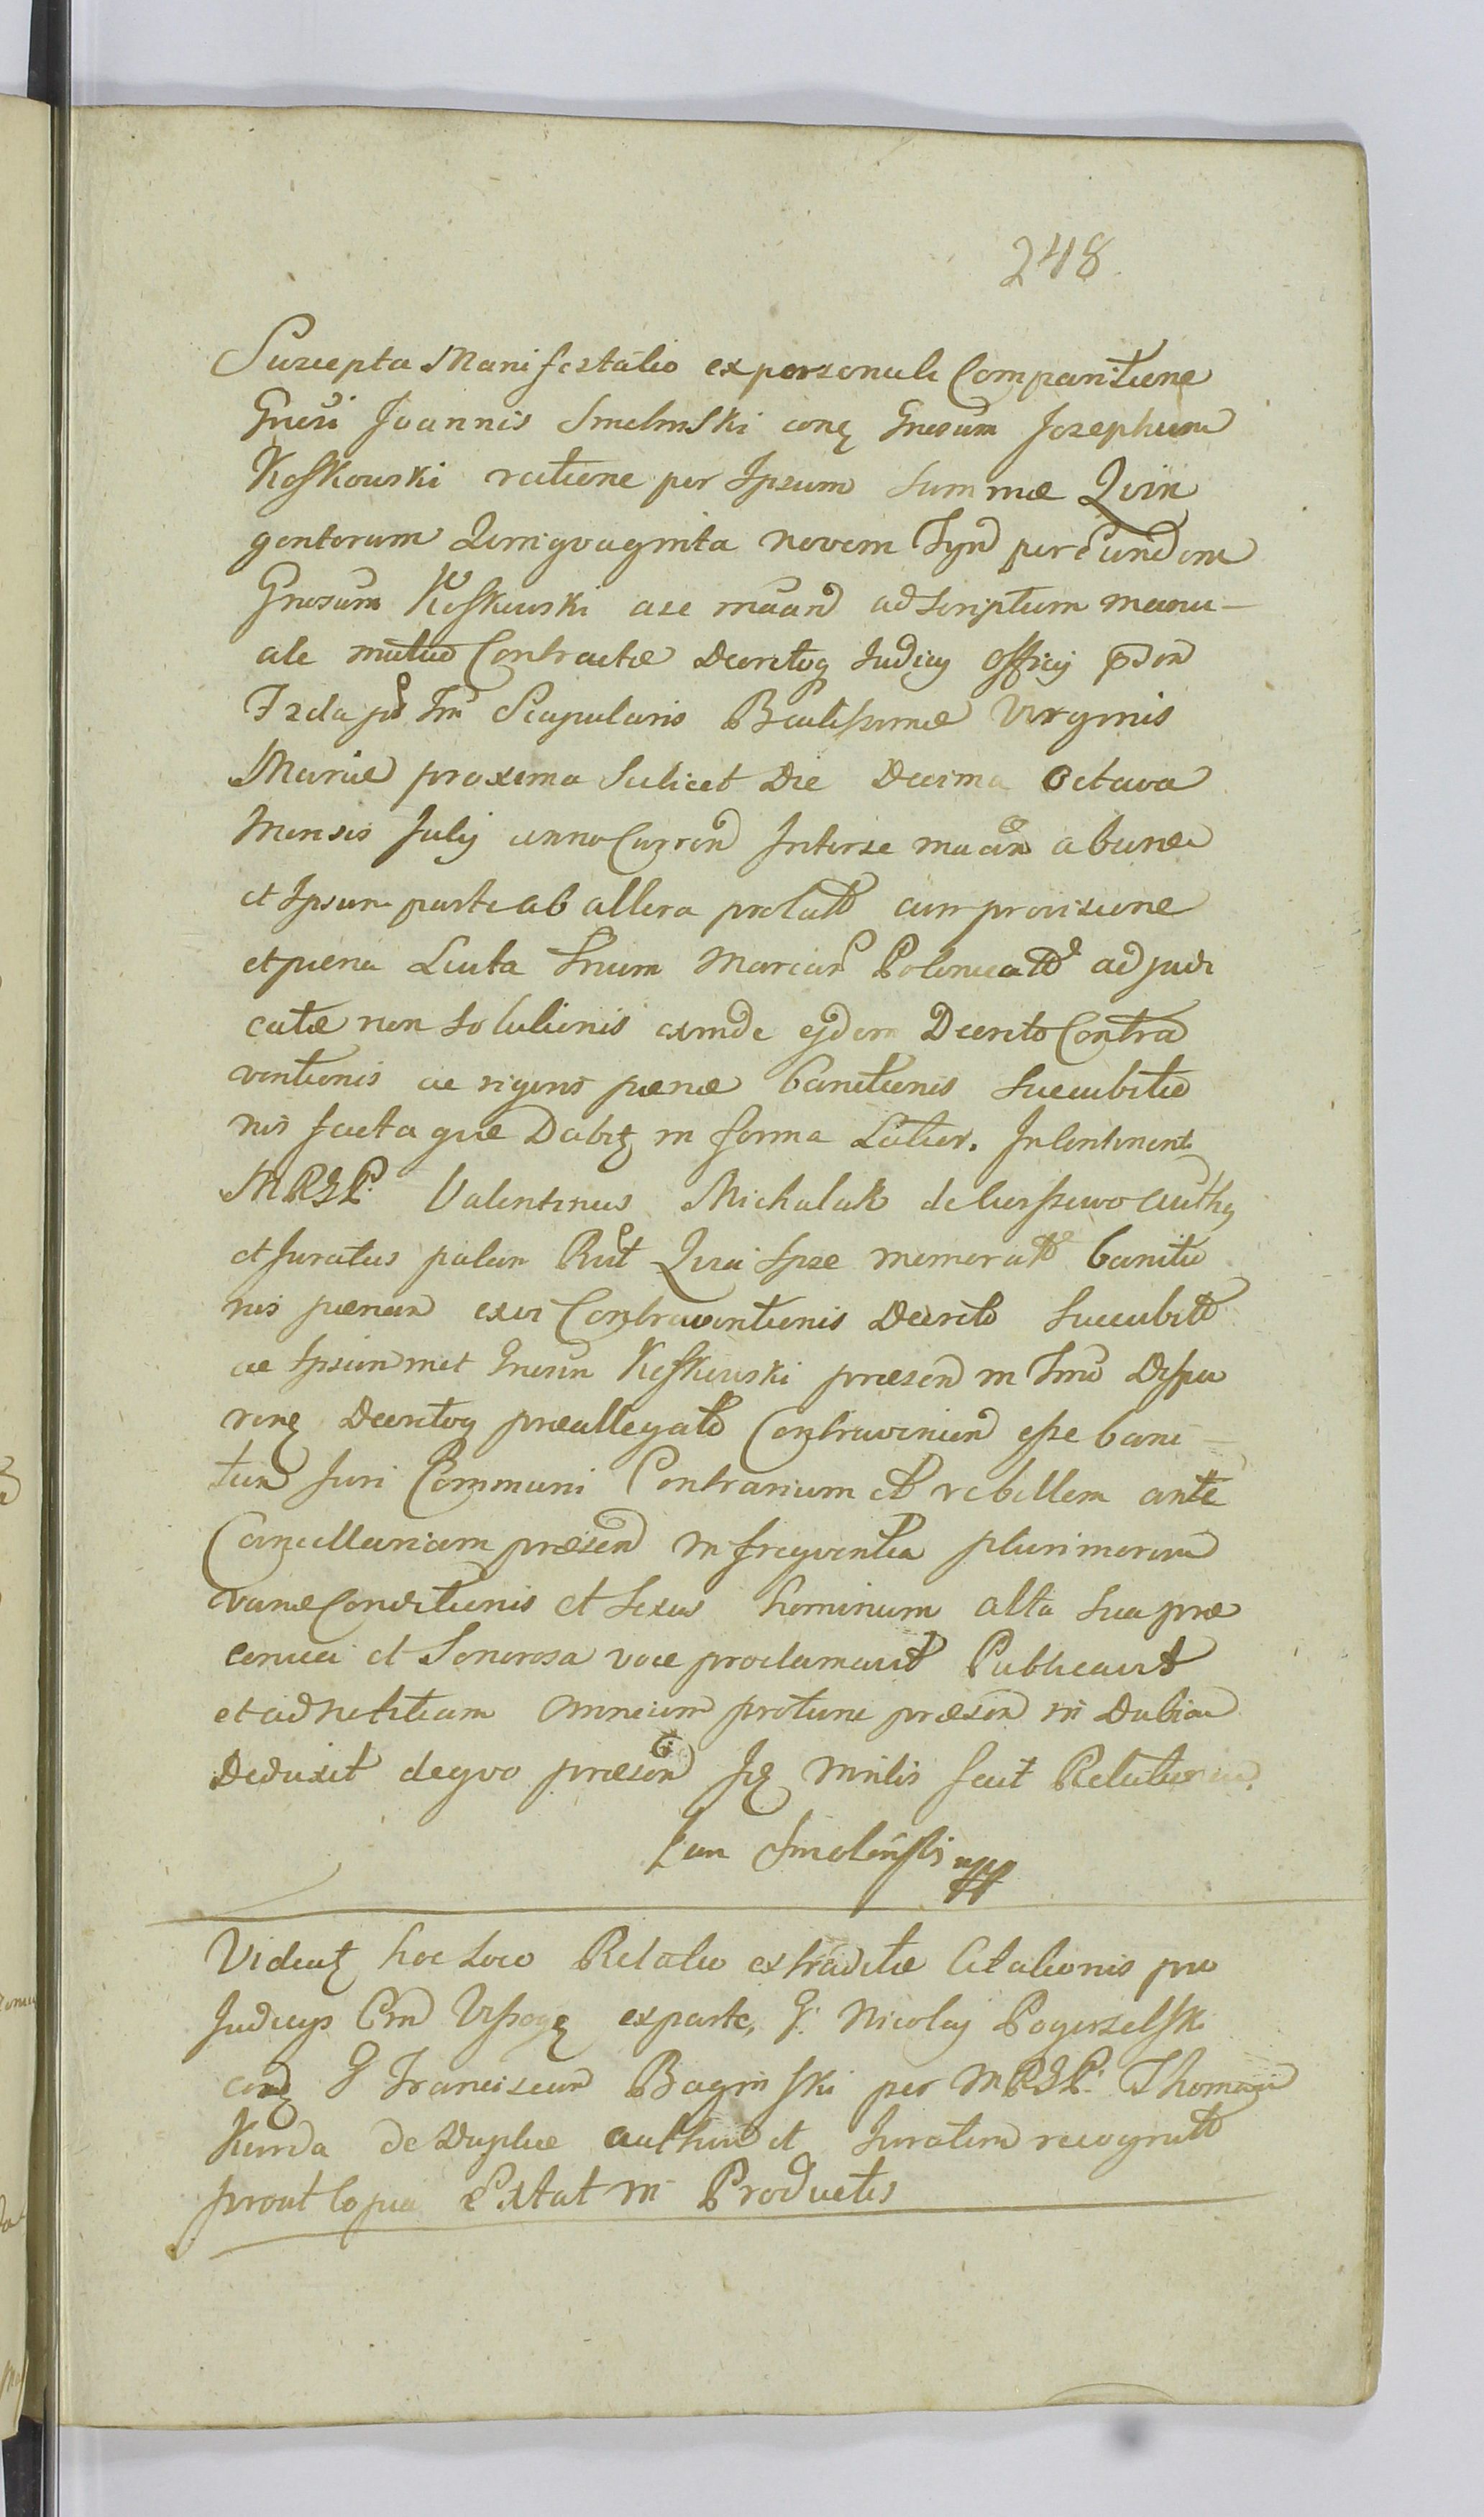 248
Suscepta Manifestatio ex personali Comparitione
Gnesi Joannis Smolinski conq Gnosum Josephum
Koskowski ratione per Ipsum Summæ Quin
gentorum Quinquaginta novem Tyn per Eundem
Gnosum Koskowski a se mãand ad Scriptum manu-
ale mutuo Contractæ Decretoq Judicij Officij pdn
Fzda Scapularis Beatissimæ Virginis
Mariæ proxima Scilicet Die Decima Octava
Mensis Julij anno Curren Inter se ab una
et Ipsum parte ab altera prolatt cum provisione
et pœna Luita Trium Marcar Polonicatt adjudi
catæ non Solutionis exinde ejdem Decreto Contra
ventionis ac rigoris pœnæ banitionis Succubitio
nis facta quæ Dabit in forma Latior. In Continent
MRGP. Valentinus Michalak de authq
et Juratus palam Rut Quia Ipse memoratt banitio
nis pœnam ex vi Contraventionis Decreto Succubitt
ac Ipsummet Gnosum Koskowski præsen in Tmo Dispa
ren Decretoq præallegato Contravenien esse bani-
tum Juri Communi Contrarium et rebellem ante
Cancellariam præsen in frequentia plurimorum
variæ Conditionis et Sexus hominum alta Sua præ
conica et Sonorosa voce proclamavit Publicavit
et ad notitiam Omnium protunc præsen in Dubiam
Deduxit de quo præsen Jq Mntlis fecit Relationem.
Jan Smolinski mpp
Videatz hoc Loco Relatio extraditæ Citationis pro
Judicijs Crn ex parte, G. Nicolaj Pogorzelski
conq G Franciscum Baginski per MRGP. Thomam
Kurda de authen et Juratum recognitt
prout Copia Extat in Productis